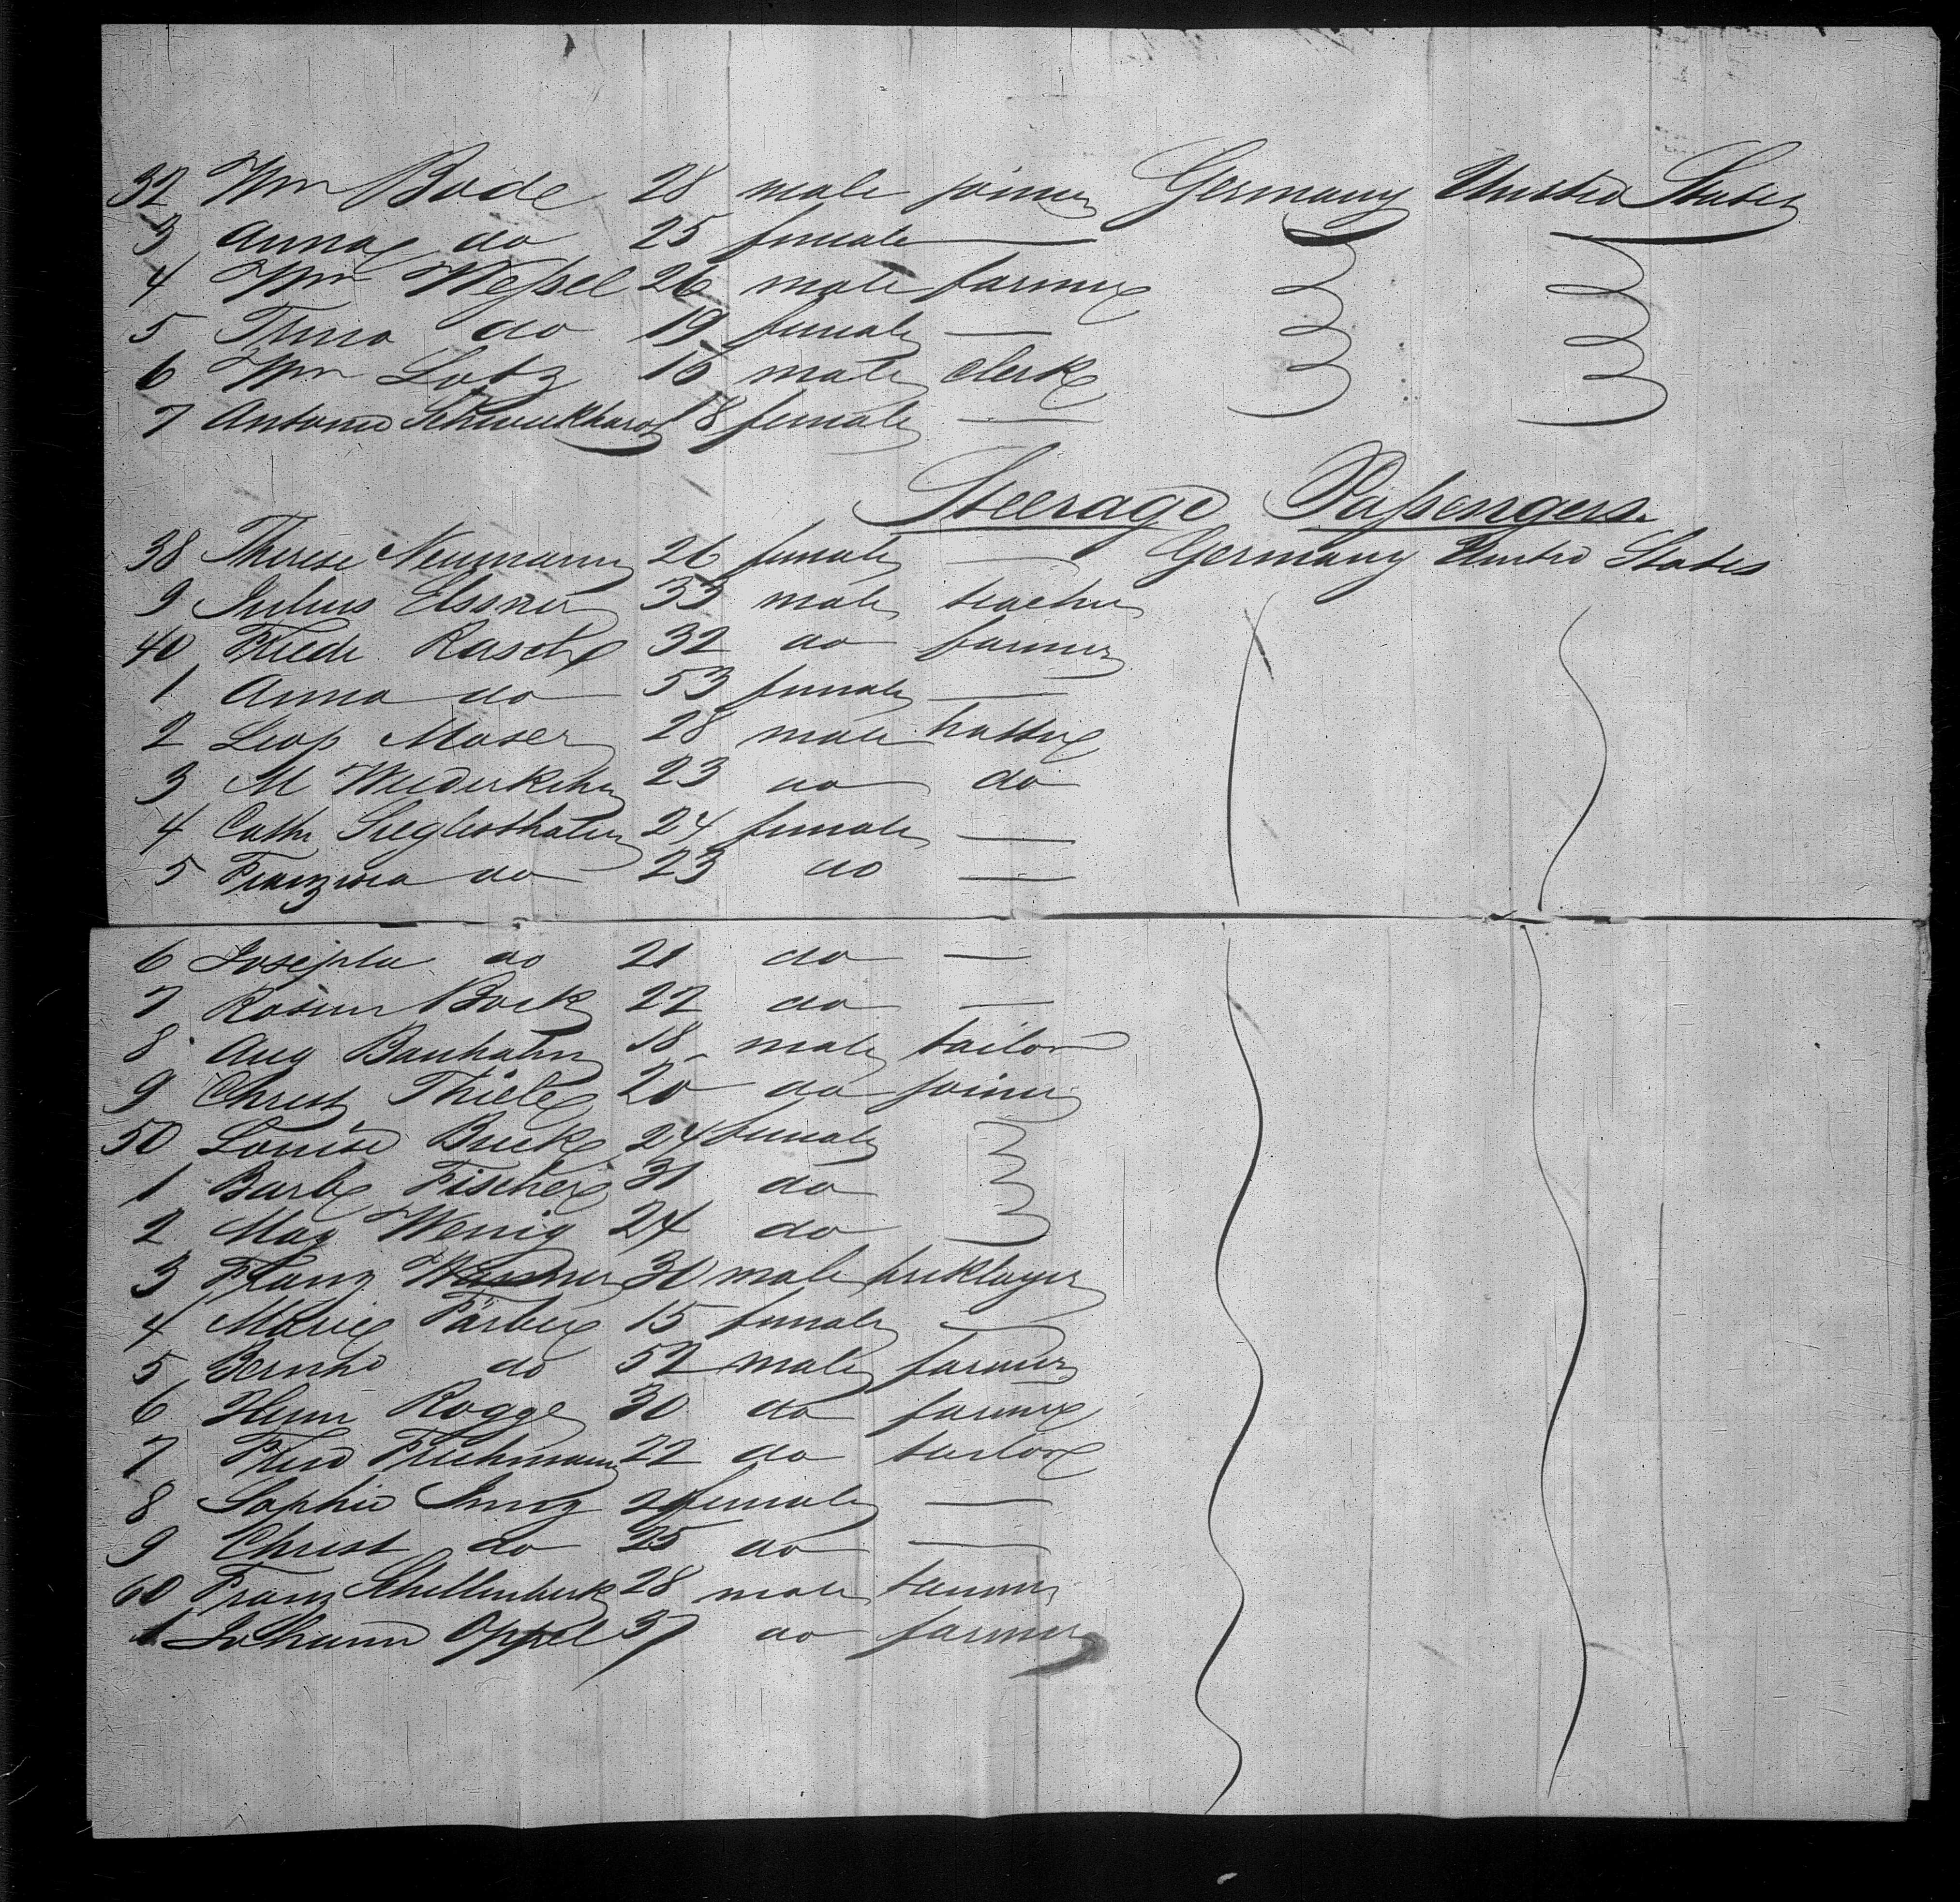 32 Wm Bode 28 male joiner Germany United States
3 Anna do 25 female —
4 Wm Weßel 26 male farmer
5 Thina do 19 female —
6 Wm Lotz 16 male clerk
7 Antonie 18 female —
Steerage Paßengers.
38 Therese Neumann 26 female — Germany United States
9 Julius Elssner 33 male teacher
40 Friedr Rasche 32 do farmer
1 Anna do 53 female —
2 Leop Moser 28 male hatter
3 M Wiederkehr 23 do do
4 Cath 24 female —
5 do 23 do —
6 Josepha do 21 do —
7 Bock 22 do —
8 Aug 18 male tailor
9 Christ Thiele 20 do joiner
50 Louise 24 female
1 Barb Fischer 31 do
2 Mag Wenig 24 do
3 Franz male bricklayer
4 Marie Färber 15 female —
5 Bernhd do 52 male farmer
6 Henr Rogge 30 do farmer
7 22 do tailor
8 Sophie female —
9 Christ do 25 do —
60 Franz 28 male
1 Johann Oppel 37 do farmer